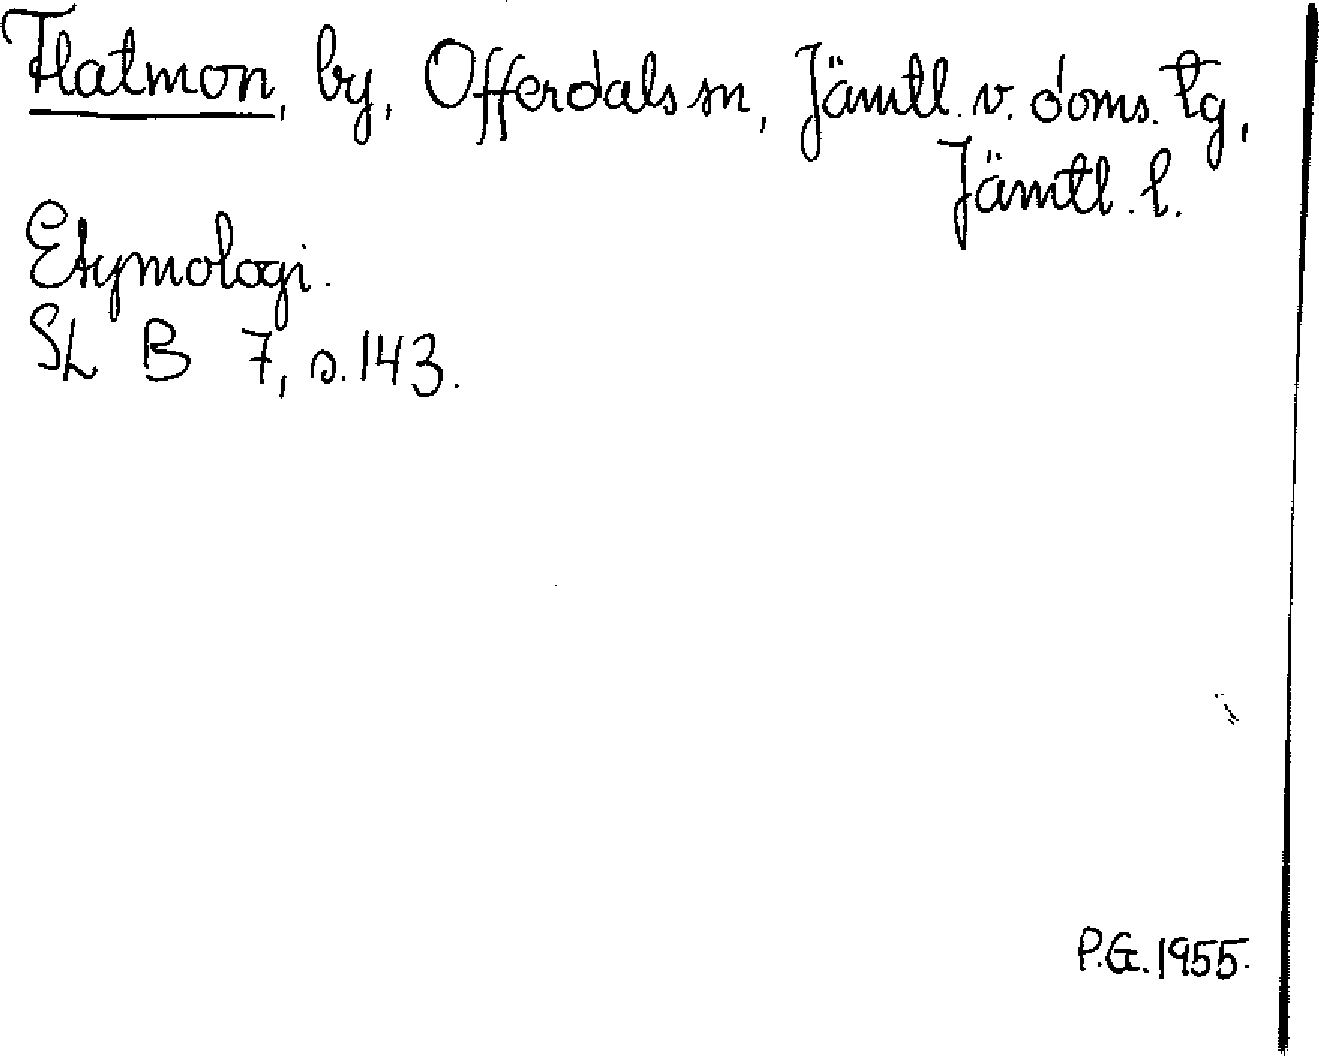 Flatmon, by, Offerdals sn, Jämtl. v. doms. tg,
Jämtl. l.
Etymologi.
SL B 7, s. 143.
P.G. 1955.